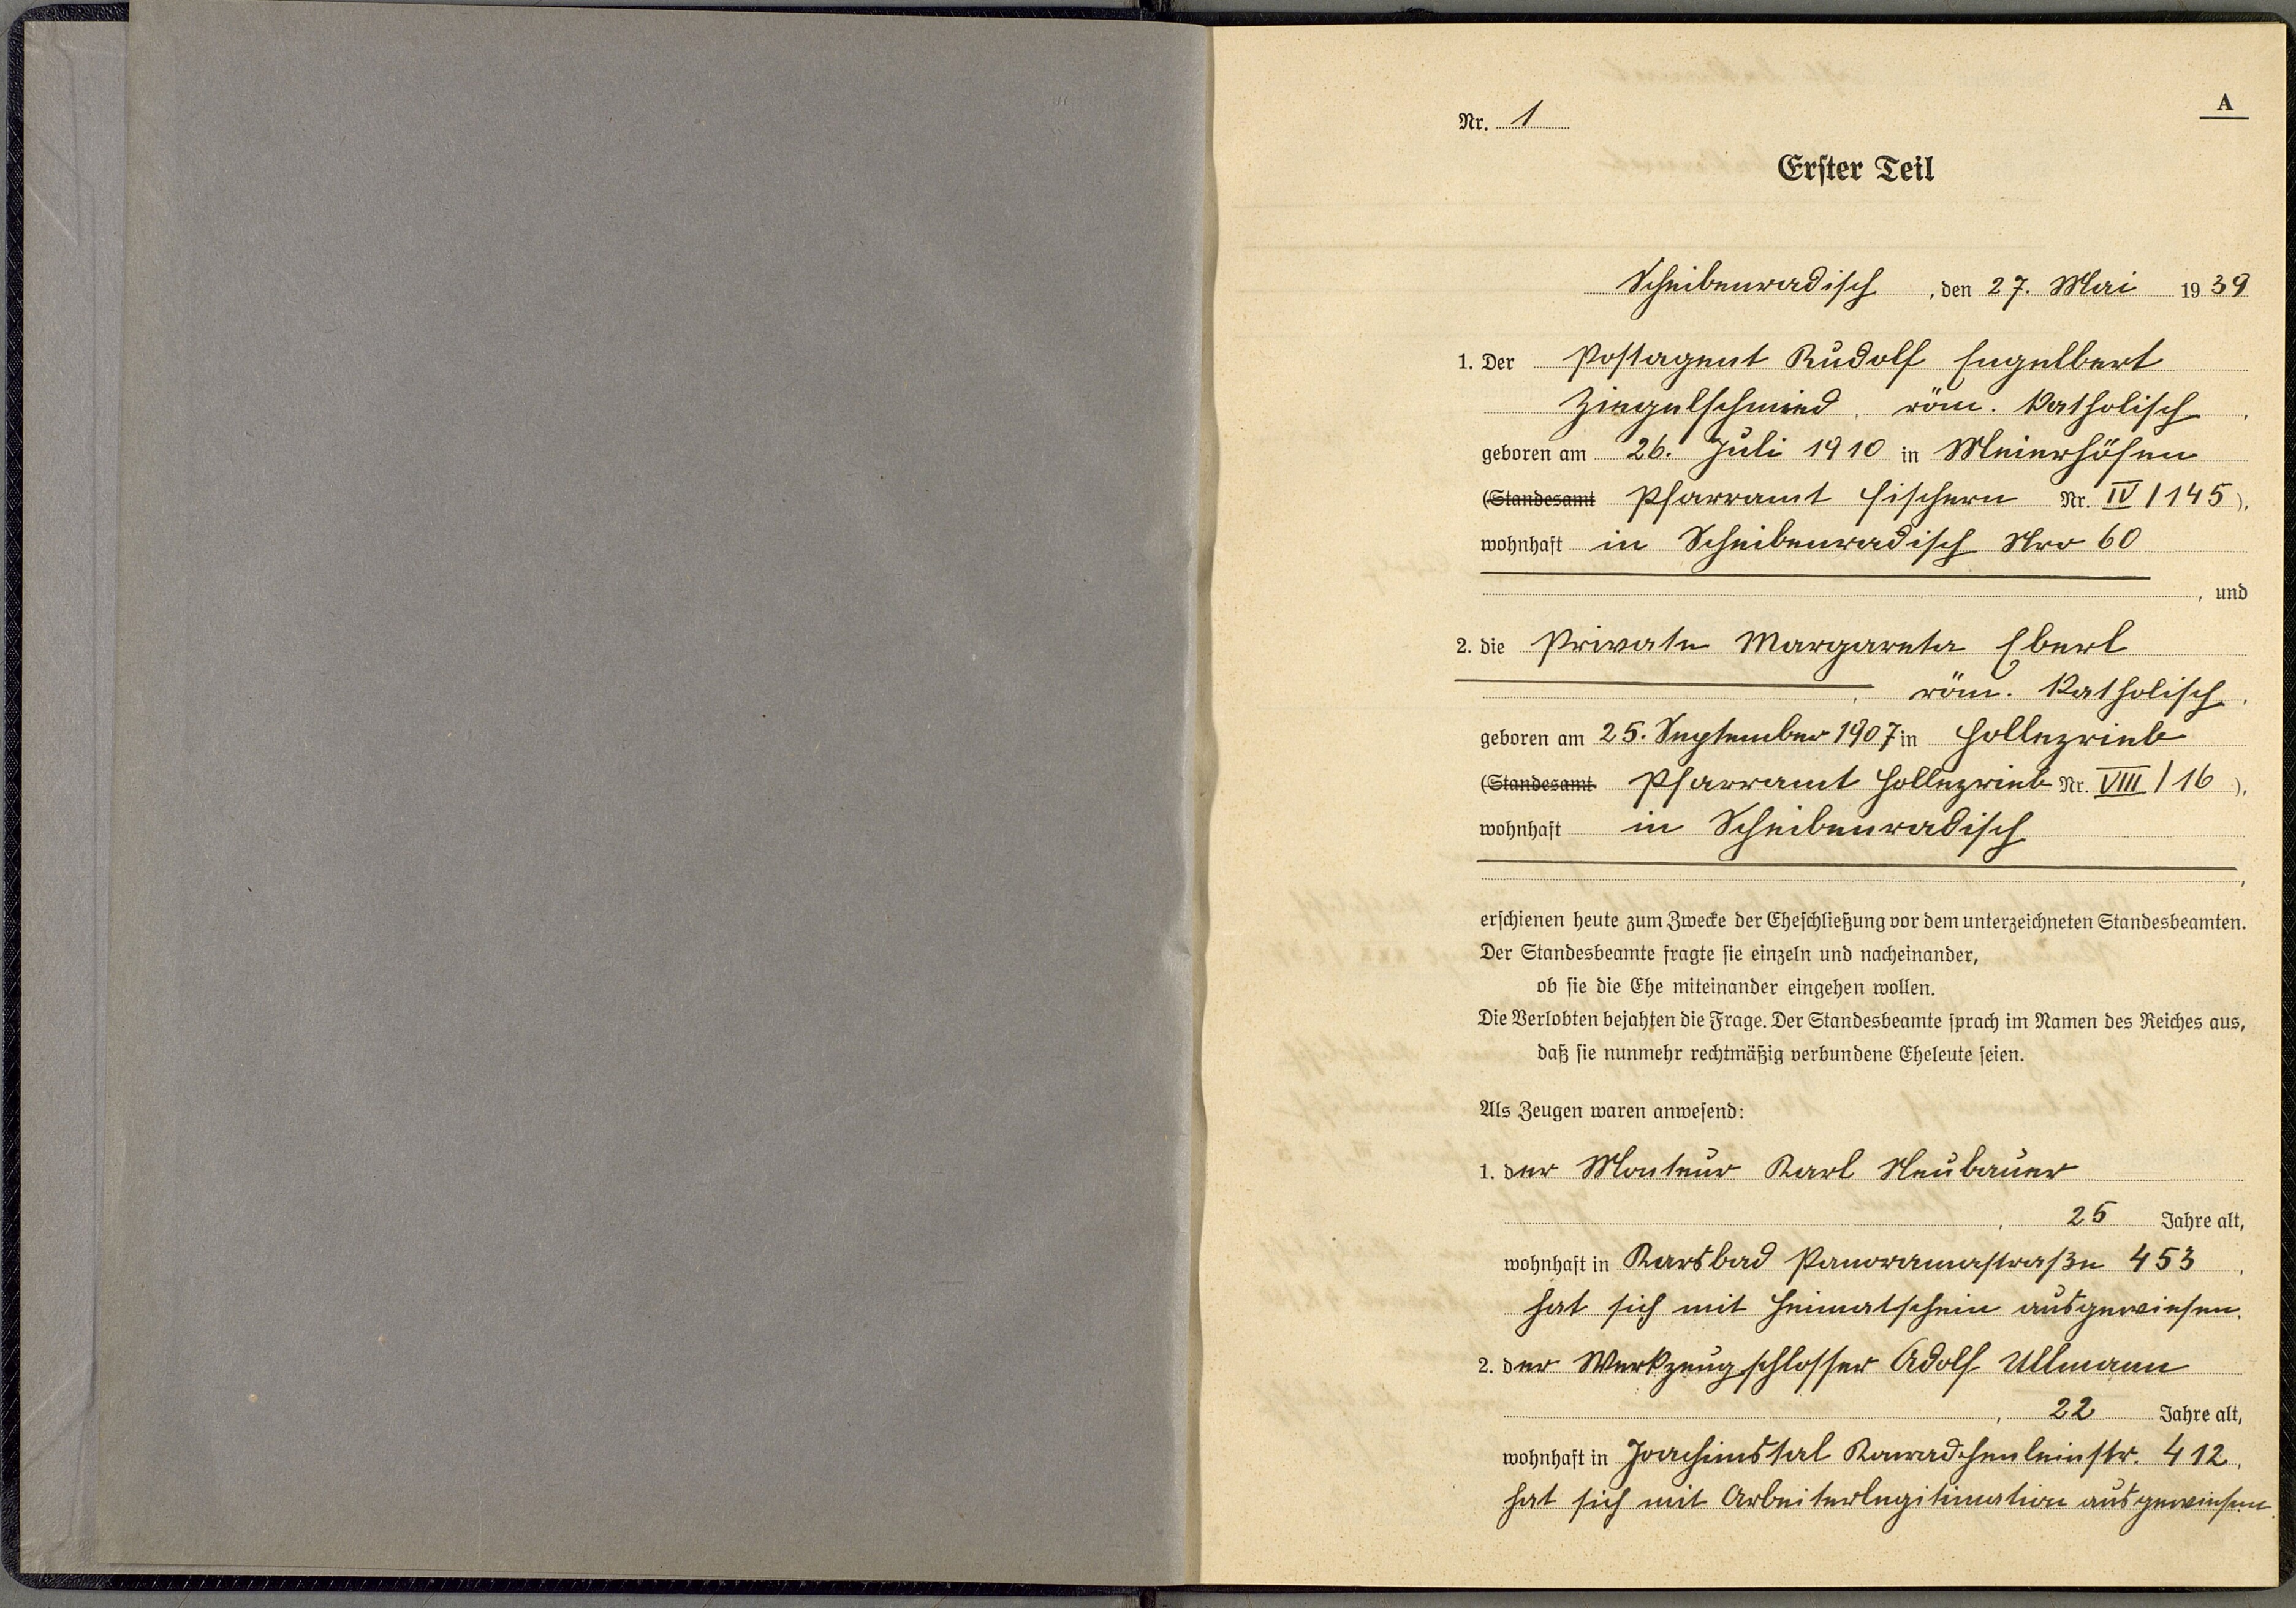 A
Nr. 1
Erster Teil
Scheibenradisch, den 27. Mai 1939
1. Der Postagent Rudolf Engelbert
Ziegelschmied, röm. Katholisch,
geboren am 26. Juli 1910 in Meierhöfen
(Standesamt Pfarramt Fischern Nr. IV/145),
wohnhaft in Scheibenradisch Nro 60
, und
2. die Private Margareta Eberl
, röm. Katholisch,
geboren am 25. September 1907 in Hollezrieb
(Standesamt Pfarramt Hollezrieb Nr. VIII/16),
wohnhaft in Scheibenradisch
,
erschienen heute zum Zwecke der Eheschließung vor dem unterzeichneten Standesbeamten.
Der Standesbeamte fragte sie einzeln und nacheinander,
ob sie die Ehe miteinander eingehen wollen.
Die Verlobten bejahten die Frage. Der Standesbeamte sprach im Namen des Reiches aus,
daß sie nunmehr rechtmäßig verbundene Eheleute seien.
Als Zeugen waren anwesend:
1. der Monteur Karl Neubauer
, 25 Jahre alt,
wohnhaft in Karlsbad Panoramastraße 453,
hat sich mit Heimatschein ausgewiesen.
2. der Werkzeugschlosser Adolf Ullmann
, 22 Jahre alt,
wohnhaft in Joachimstal Konradhenleinstr. 412,
hat sich mit Arbeiterlegitimation ausgewiesen.